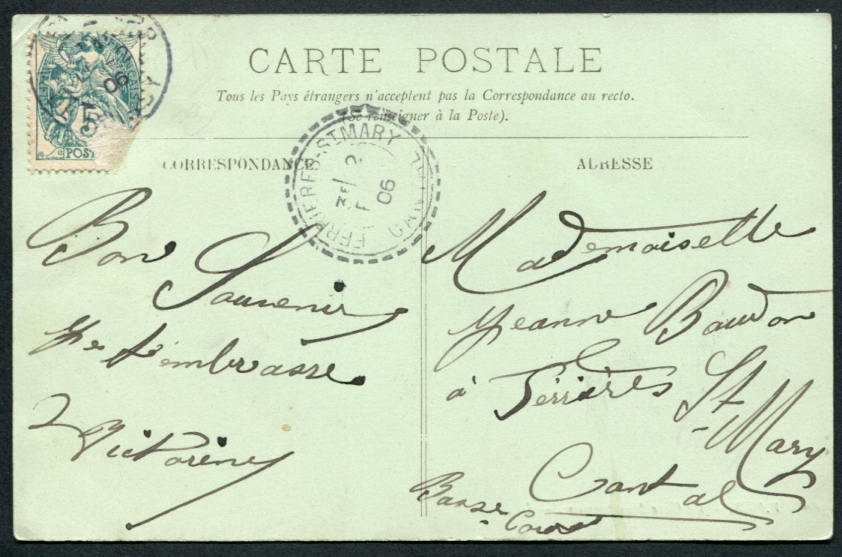 CARTE POSTALE
Tous les Pays étrangers n'acceptent pas la Correspondance au recto.
(Se renseigner à la Poste).
CORRESPONDANCE
ADRESSE
FERRIERES-ST MARY
CANTAL
06
06
POST
Bon
Souvenir
Je t'embrasse
Victorine
Mademoiselle
Jeanne Baudon
à Ferrières St
-Mary
Cantal